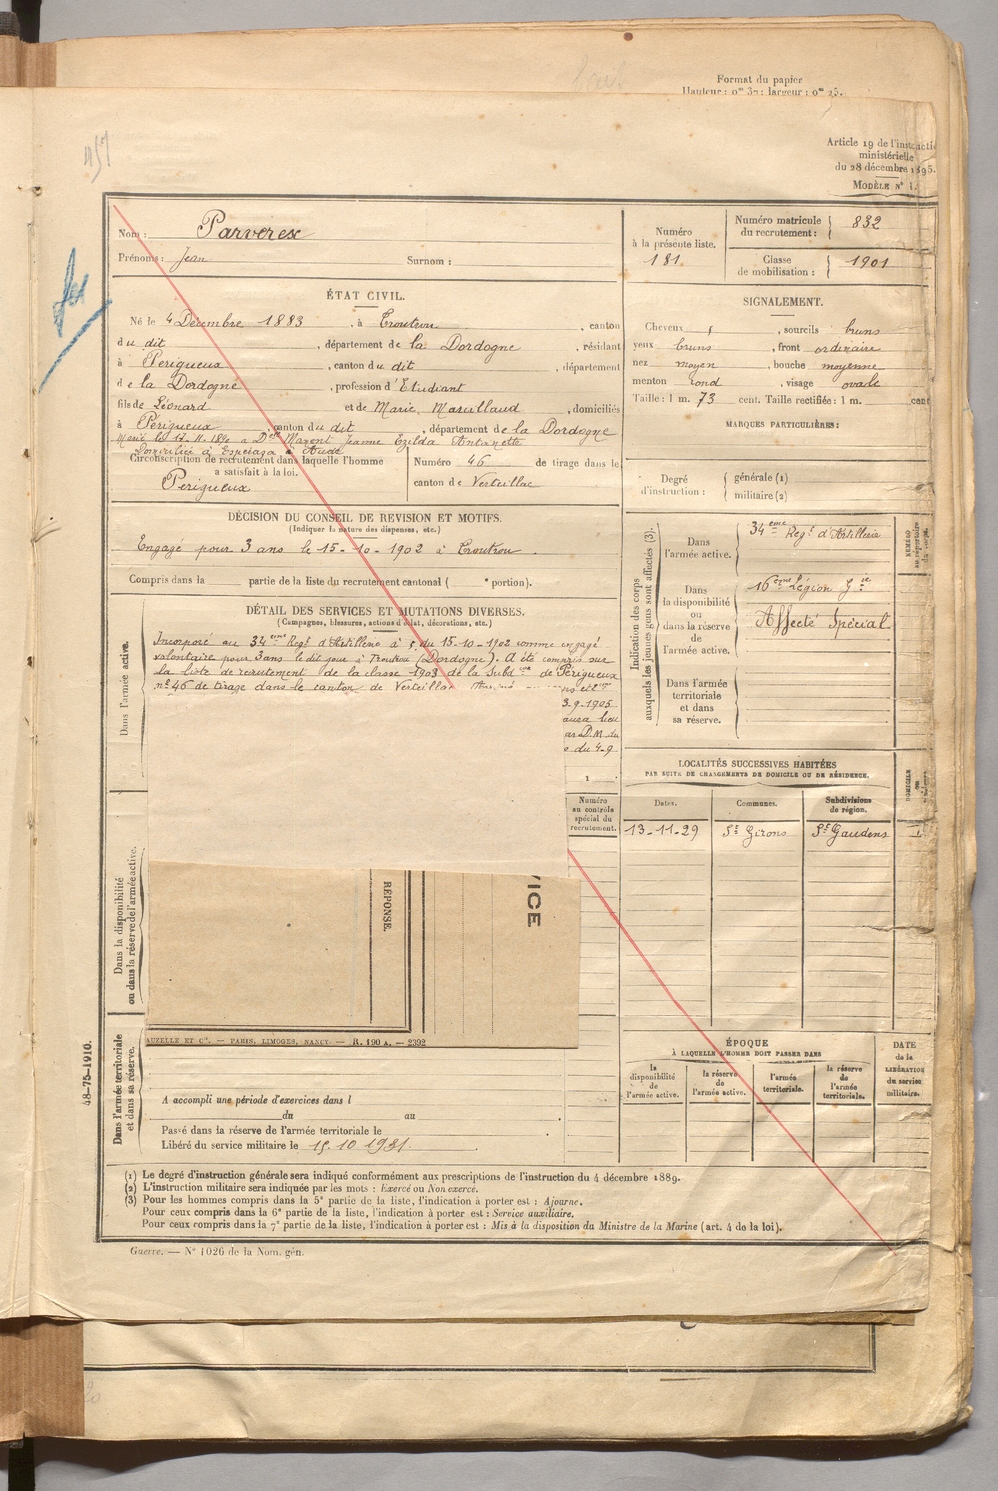 Format du papier
Hauteur : 0m 37 ; largeur : 0m 25.
Article 19 de l'instructi
ministérielle
du 28 décembre 1895.
MODÈLE N° 1.
Nom : Parverex
Prénoms : Jean Surnom :
Numéro
à la présente liste.
181
Numéro matricule
du recrutement : 832
Classe
de mobilisation : 1901
ÉTAT CIVIL.
Né le 4 Décembre 1883, à Troutrou, canton
du dit, département de la Dordogne, résidant
à Perigueux, canton du dit, département
de la Dordogne, profession d'Etudiant
fils de Léonard et de Marie, Marullaud, domiciliés
à Périgueux, canton du dit, département de la Dordogne
Marié le 17.11. à Delle Nayent Jeanne Ezilda Antoinette
Domiciliée à Esperaza Aude
Circonscription de recrutement dans laquelle l'homme
a satisfait à la loi.
Perigueux
Numéro 46 de tirage dans le
canton de Verteillac
SIGNALEMENT.
Cheveux , sourcils bruns
yeux bruns, front ordinaire
nez moyen, bouche moyenne
menton rond, visage ovale
Taille : 1 m. 73 cent. Taille rectifiée : 1 m. cent
MARQUES PARTICULIÈRES :
Degré
d'instruction :
générale (1)
militaire (2)
DÉCISION DU CONSEIL DE REVISION ET MOTIFS.
(Indiquer la nature des dispenses, etc.)
Engagé pour 3 ans le 15-10-1902 à Troutrou.
Compris dans la partie de la liste du recrutement cantonal ( e portion).
DÉTAIL DES SERVICES ET MUTATIONS DIVERSES.
(Campagnes, blessures, actions d'éclat, décorations, etc.)
Dans l'armée active.
Incorporé au 34eme Regt d'Artillerie à c. du 15-10-1902 comme engagé
volontaire pour 3 ans le dit jour à Troutrou (Dordogne). A été compris sur
la liste de recrutement de la classe 1903 de la Subd.on de Périgueux
n° 46 de tirage dans le canton de Verteillac
3.9.1905
aura lieu
par D.M. du
du 4-9
1
Indication des corps
auxquels les jeunes gens sont affectés (3).
Dans
l'armée active.
34eme Regt d'Artillerie
Dans
la disponibilité
ou
dans la réserve
de
l'armée active.
16eme Légion Gie
Affecté Spécial
Dans l'armée
territoriale
et dans
sa réserve.
NUMÉRO
au répertoire
du corps.
LOCALITÉS SUCCESSIVES HABITÉES
PAR SUITE DE CHANGEMENTS DE DOMICILE OU DE RÉSIDENCE.
Dates. Communes. Subdivisions
de région.
DOMICILE
ou
13-11-29 St Girons St Gaudens
Numéro
au contrôle
spécial du
recrutement.
Dans la disponibilité
ou dans la réserve de l'armée active.
REPONSE.
VICE
AUZELLE ET Cie. — PARIS, LIMOGES, NANCY. — R. 190 A. — 2392
ÉPOQUE
À LAQUELLE L'HOMME DOIT PASSER DANS
la
disponibilité
de
l'armée active.
la réserve
de
l'armée active.
l'armée
territoriale.
la réserve
de
l'armée
territoriale.
DATE
de la
LIBÉRATION
du service
militaire.
Dans l'armée territoriale
et dans sa réserve.
A accompli une période d'exercices dans l
du au
Passé dans la réserve de l'armée territoriale le
Libéré du service militaire le 15.10 1931.
48-75-1910.
(1) Le degré d'instruction générale sera indiqué conformément aux prescriptions de l'instruction du 4 décembre 1889.
(2) L'instruction militaire sera indiquée par les mots : Exercé ou Non exercé.
(3) Pour les hommes compris dans la 5e partie de la liste, l'indication à porter est : Ajourné.
Pour ceux compris dans la 6e partie de la liste, l'indication à porter est : Service auxiliaire.
Pour ceux compris dans la 7e partie de la liste, l'indication à porter est : Mis à la disposition du Ministre de la Marine (art. 4 de la loi).
Guerre. — N° 1026 de la Nom. gén.